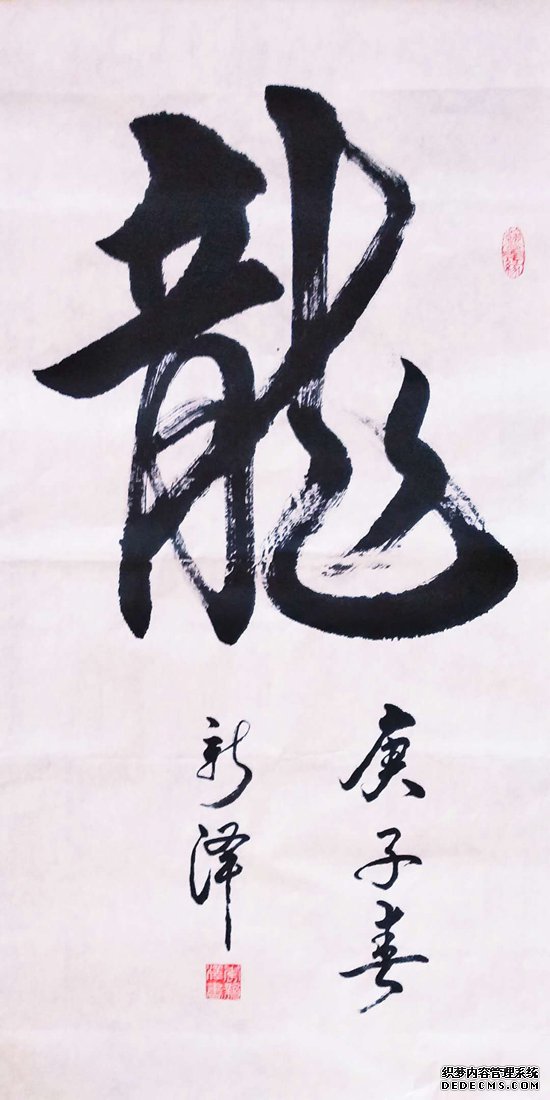 龍
庚子春
新泽
织梦内容管理系统
DEDECMS.COM